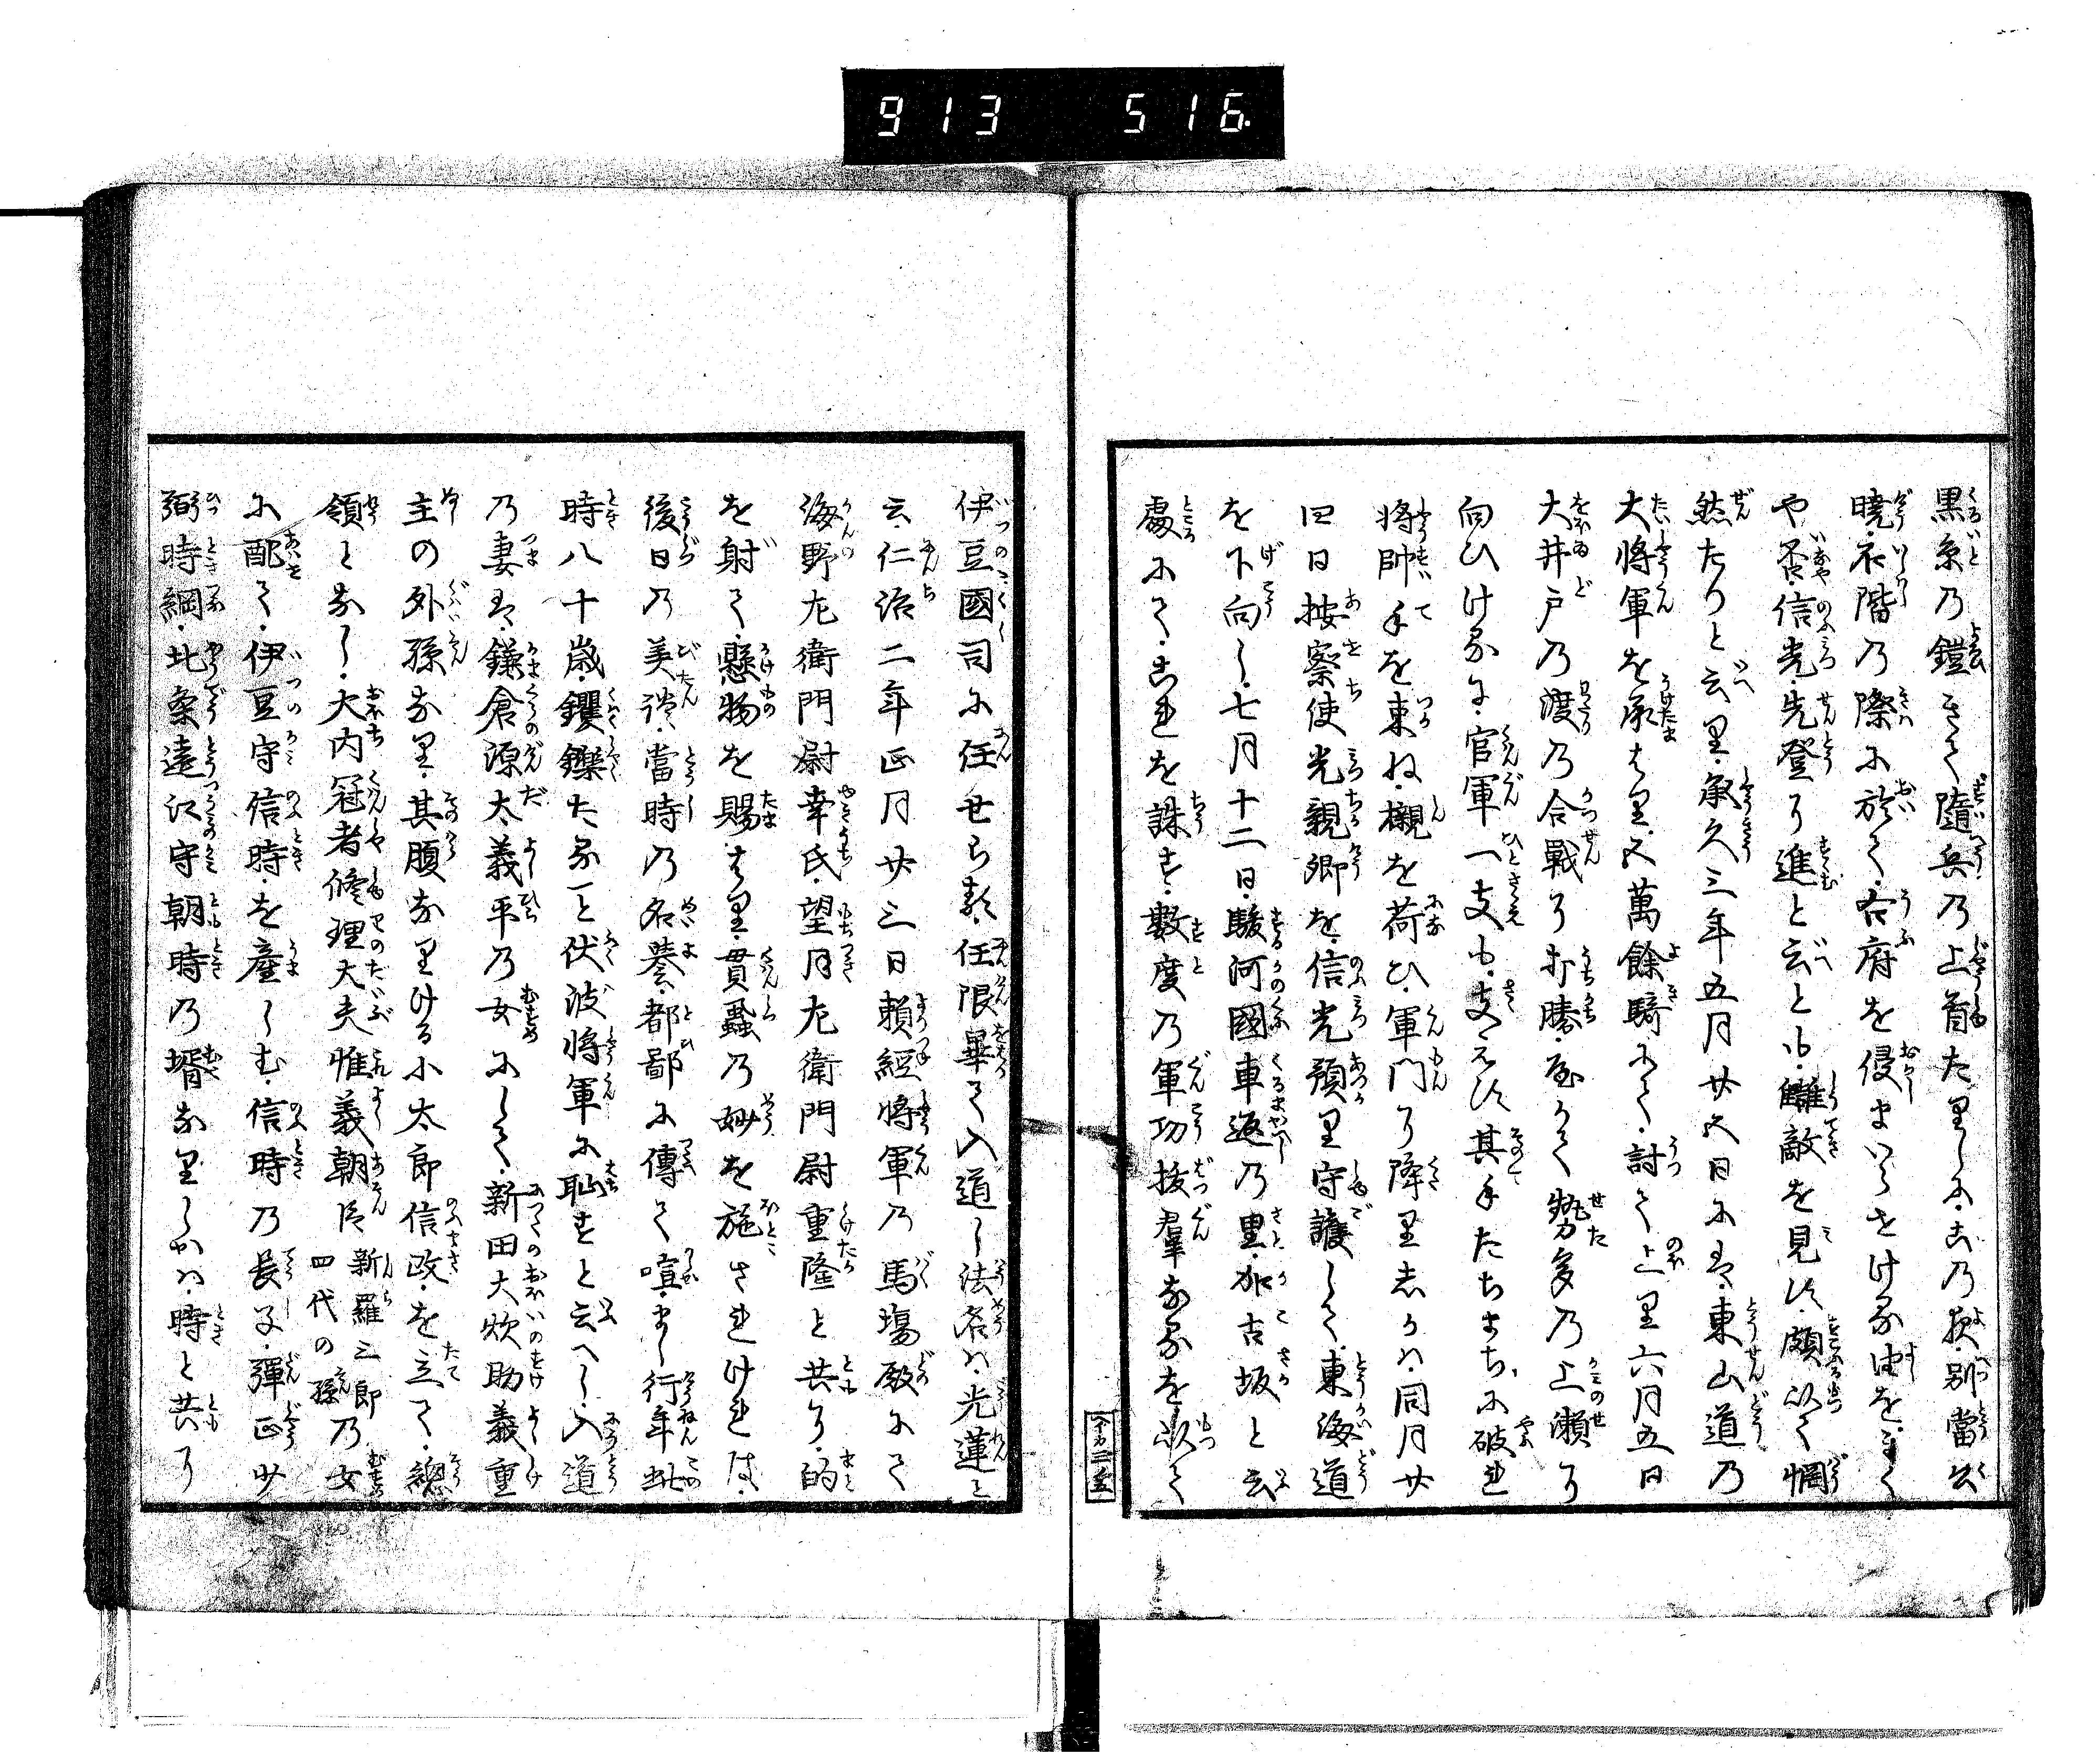 913 516
黒糸乃鎧きて隨兵乃上首たりしに古乃夜別當公
暁石階乃際に於て右府を侵まいらせける由をきく
や否信光先登に進と云とも讎敵を見ず頗以て惘
然たりと云里承久三年五月廿五日には東山道乃
大將軍を承はり五萬餘騎にて討て上里六月五日
大井戸乃渡乃合戰に打勝猛く勢多乃上瀬に
向ひける官軍一支も支えず其手たちまちに破れ
將帥手を束ね櫬を荷ひ軍門に降里しかハ同月廿
四日按察使光親卿を信光預里守護して東海道
を下向し七月十二日駿河國車返乃里加古坂と云
處にてこれを誅す數度乃軍功抜羣なるを以て
伊豆國司に任せられ任限畢て入道し法名ハ光蓮と
云仁治二年正月廿三日頼經將軍乃馬塲殿にて
海野左衛門尉幸氏望月左衛門尉重隆と共に的
を射て懸物を賜はり貫蝨乃妙を施されけれは
後日乃美談當時乃名誉都鄙に傳て喧まし行年此
時八十歳钁鑠たること伏波將軍に恥すと云へし入道
乃妻は鎌倉源太義平乃女にして新田大炊助義重
主の外孫なり其腹なりける小太郎信政を立て總
領となし大内冠者修理大夫惟義朝臣新羅三郎四代の孫乃女
に配て伊豆守信時を産しむ信時乃長子彈正少
弼時綱北条遠江守朝時乃壻なりしかハ時と共に